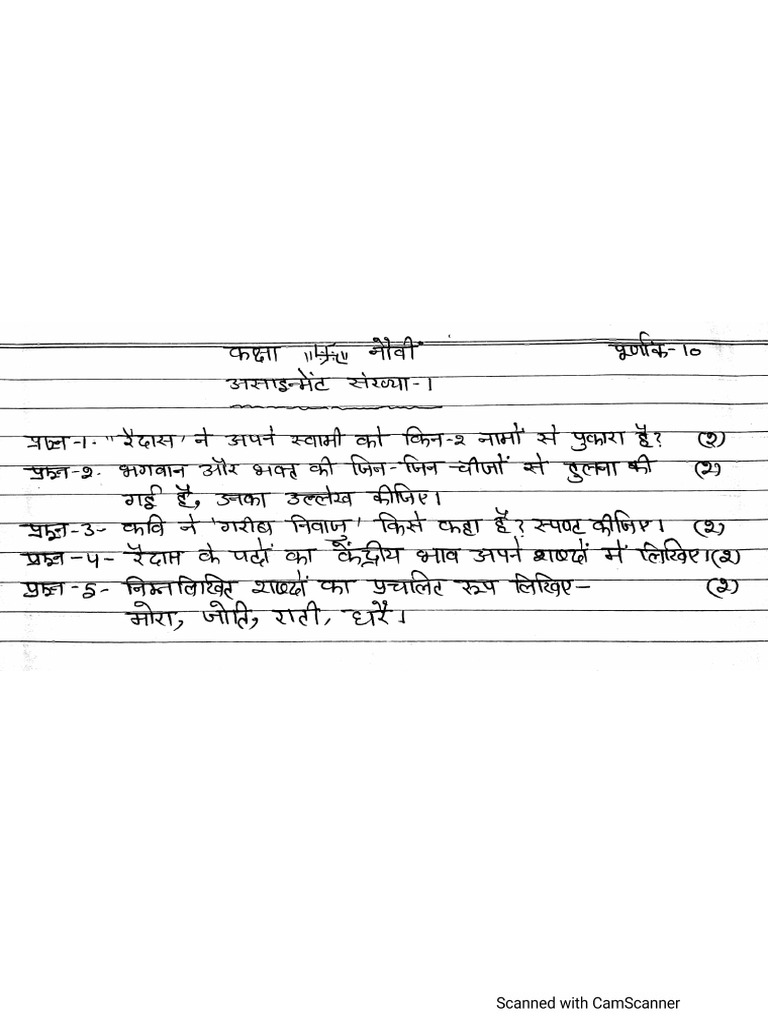 कक्षा नौवीं पूर्णांक-10
असाइन्मेंट संख्या-1
प्रश्न-1. "रैदास' ने अपने स्वामी को किन-२ नामों से पुकारा है? (२)
प्रश्न-२. भगवान और भक्त की जिन-जिन चीजों से तुलना की (२)
गई है, उनका उल्लेख कीजिए।
प्रश्न-३- कवि ने 'गरीब निवाजु' किसे कहा है? स्पष्ट कीजिए। (२)
प्रश्न-4- रैदास के पदों का केंद्रीय भाव अपने शब्दों में लिखिए।(२)
प्रश्न-5- निम्नलिखित शब्दों का प्रचलित रूप लिखिए- (२)
मोरा, जोति, राती, धरै।
Scanned with CamScanner